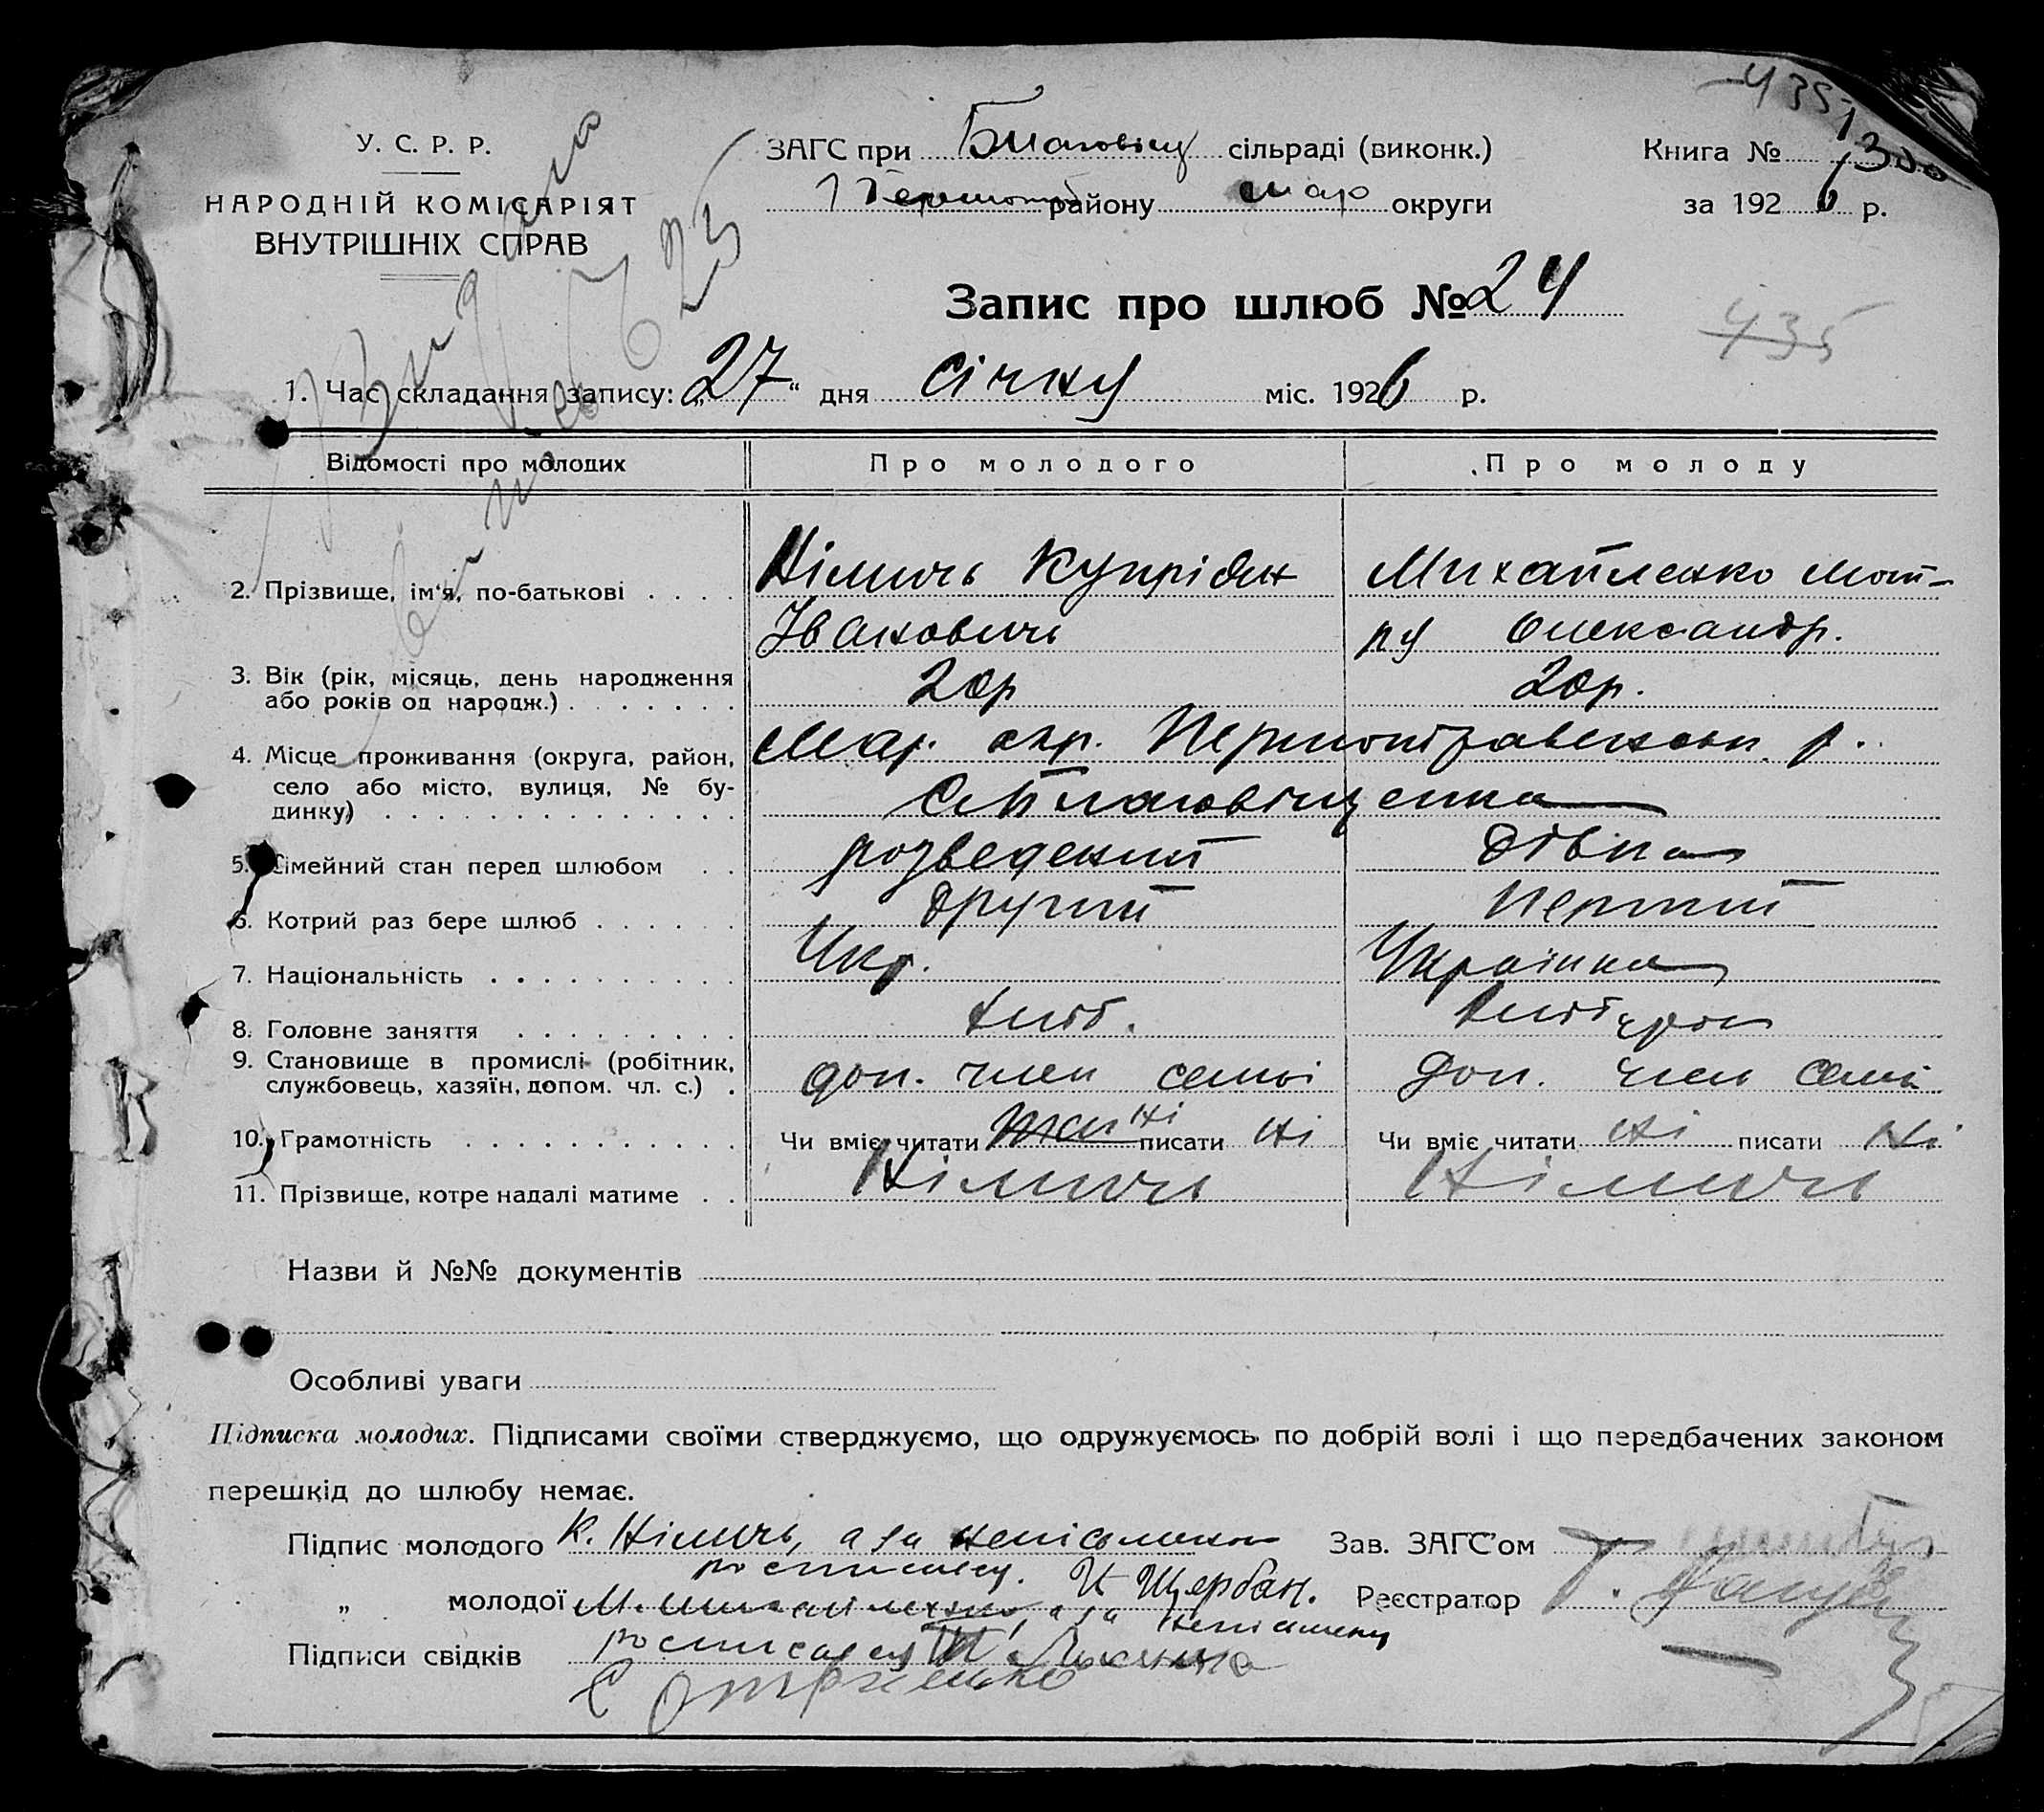 435
У. С. Р. Р.
НАРОДНІЙ КОМІСАРІЯТ
ВНУТРІШНІХ СПРАВ
ЗАГС при Благовіщ сільраді (виконк.)
району Мар округи
Книга № 1300
за 1926 р.
Запис про шлюб № 24
435
1. Час складання запису: „27“ дня січню міс. 1926 р.
Відомості про молодих
Про молодого
Про молоду
2. Прізвище, ім'я, по-батькові . . . .
Німичь Купріян
Івановичь
Михайленко Мот-
ря Олександр.
3. Вік (рік, місяць, день народження
або років од народж.) . . . . . . .
20р
20р.
4. Місце проживання (округа, район,
село або місто, вулиця, № бу-
динку) . . . . . . . . . . . . . .
Мар. окр. Першотравенськ. р.
с. Благовіщенка
5. Сімейний стан перед шлюбом . .
розведений
дівка
6. Котрий раз бере шлюб . . . . . .
другий
перший
7. Національність . . . . . . . . . .
Укр.
Українка
8. Головне заняття . . . . . . . . .
хліб.
хлібороб
9. Становище в промислі (робітник,
службовець, хазяїн, допом. чл. с.) .
доп. член семьі
доп. член семьі
10. Грамотність . . . . . . . . . . .
Чи вміє читати ні писати ні
Чи вміє читати ні писати ні
11. Прізвище, котре надалі матиме . .
Німичь
Німичь
Назви й №№ документів
Особливі уваги
Підписка молодих. Підписами своїми стверджуємо, що одружуємось по добрій волі і що передбачених законом
перешкід до шлюбу немає.
Підпис молодого К. Німичь, а за
Зав. ЗАГС'ом
И Щербан.
„ молодої М. Михайленко, а за
Реєстратор Г.
Підписи свідків росписался